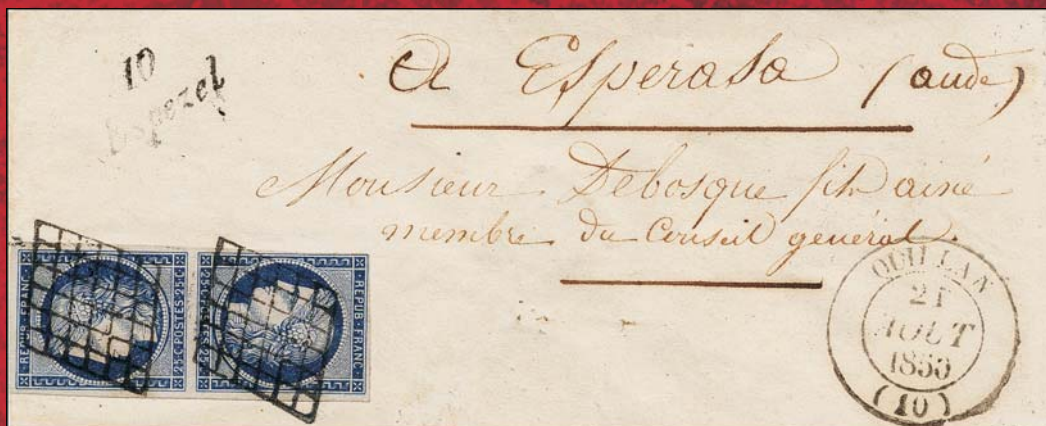 10
Espezel
A Esperasa (aude)
Monsieur Debosque fils ainé
membre du Conseil général.
REPUB·FRANC·
25·C·POSTES·25·C·
REPUB·FRANC·
QUILLAN
21
AOUT
1850
(10)